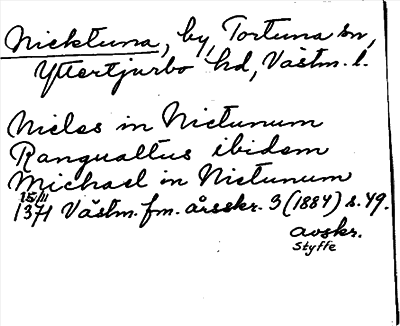 Nicktuna, by, Tortuna sn,
Yttertjurbo hd, Västm. l.
Nicles in Nictunum
Rangualtus ibidem
Michael in Nictunum
15/11
1371 Västm. fm. årsskr. 3 (1884) s. 49.
avskr.
Styffe